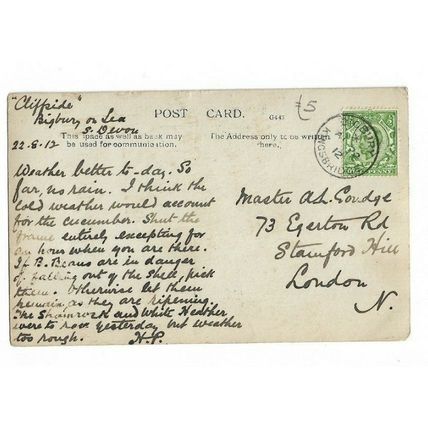 "Cliffside"
Bigbury on Sea
S. Devon
22-8-12
POST CARD.
G443
This space as well as back may
be used for communication.
The Address only to be written
here.
£5
Weather better to-day. So
far, no rain. I think the
cold weather would account
for the cucumber. Shut the
frame entirely excepting for
an hour when you are there.
If B. Beans are in danger
of falling out of the shell, pick
them. Otherwise let them
remain, as they are ripening.
The Shamrock and White Heather
were to race yesterday but weather
too rough. H.P.
Master A.L. Goudge
73 Egerton Rd
Stamford Hill
London
N.
BIGBURY
KINGSBRIDGE